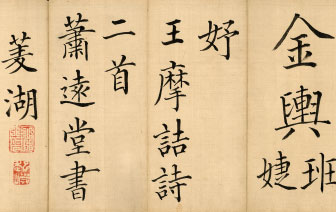 金輿班婕
妤
王摩詰詩
二首
蕭遠堂書
菱湖